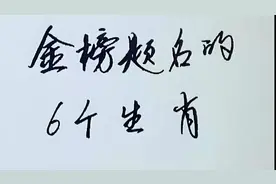 金榜题名的
6个生肖